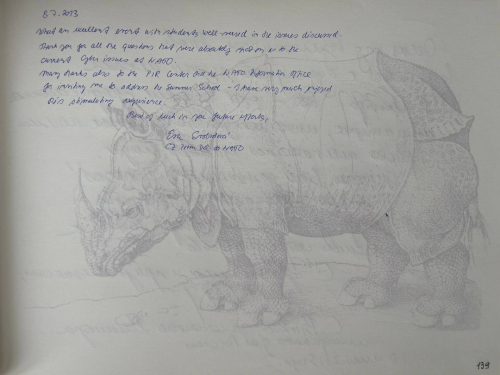 8.7.2013
What an excellent event with students well-versed in the issues discussed.
Thank you for all the questions that were absolutely spot on as to the
current cyber issues at NATO.
Many thanks also to the PIR Center and the NATO Information Office
for inviting me to address the Summer School - I have very much enjoyed
this stimulating experience.
Best of luck in your future efforts,
Eva
CZ NATO
139